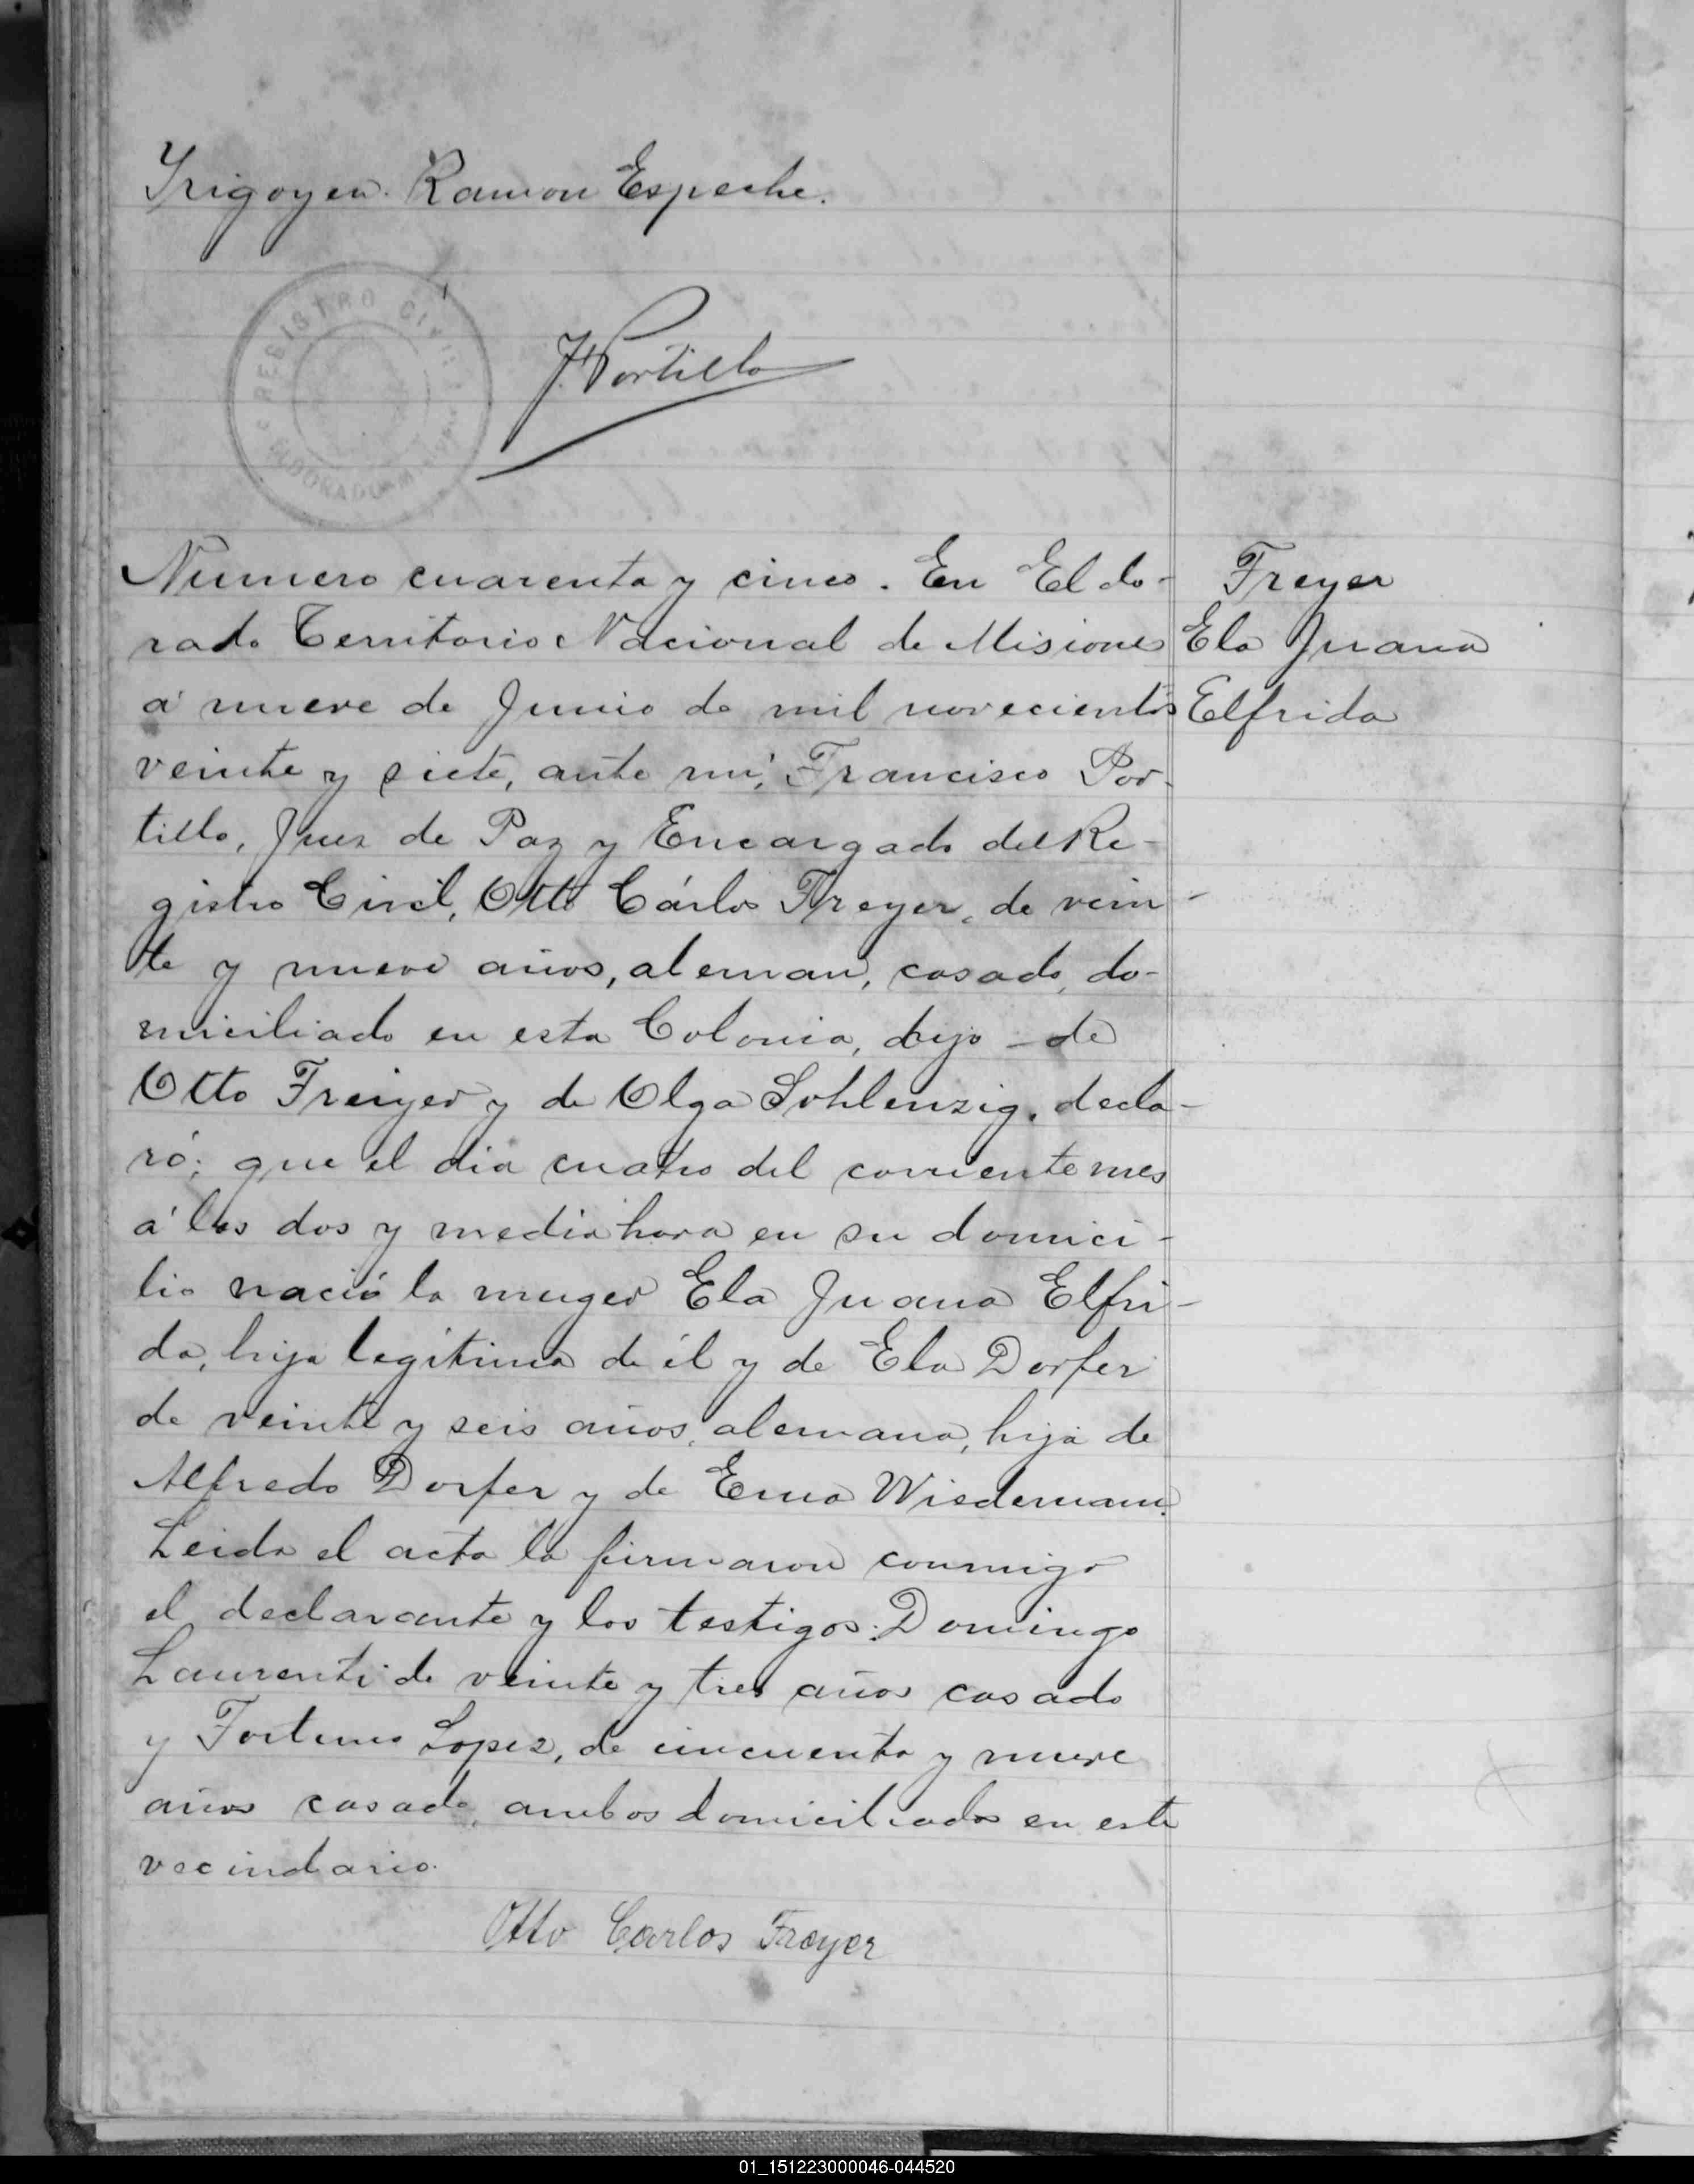 Yrigoyen. Ramon Espeche.
REGISTRO CIVIL
ELDORADO - M
F. Portillo
Numero cuarenta y cinco. En Eldo-
rado Territorio Nacional de Misiones
á nueve de Junio de mil novecientos
veinte y siete, ante mi, Francisco Por-
tillo, Juez de Paz y Encargado del Re-
gistro Civil, Otto Cárlos Freyer, de vein-
te y nueve años, aleman, casado, do-
miciliado en esta Colonia, hijo - de
Otto Freiyer y de Olga Sohlenzig, decla-
ró: que el dia cuatro del corriente mes
á las dos y media hora en su domici-
lio nació la muger Ela Juana Elfri-
da, hija legítima de él y de Ela Dorfer
de veinte y seis años, alemana, hija de
Alfredo Dorfer y de Erna Wiedemann.
Leida el acta la firmaron conmigo
el declarante y los testigos: Domingo
Laurenti de veinte y tres años casado
y Fortuno Lopez, de cincuenta y nueve
años casado, ambos domiciliados en este
vecindario.
Otto Carlos Freyer
Freyer
Ela Juana
Elfrida
01_151223000046-044520